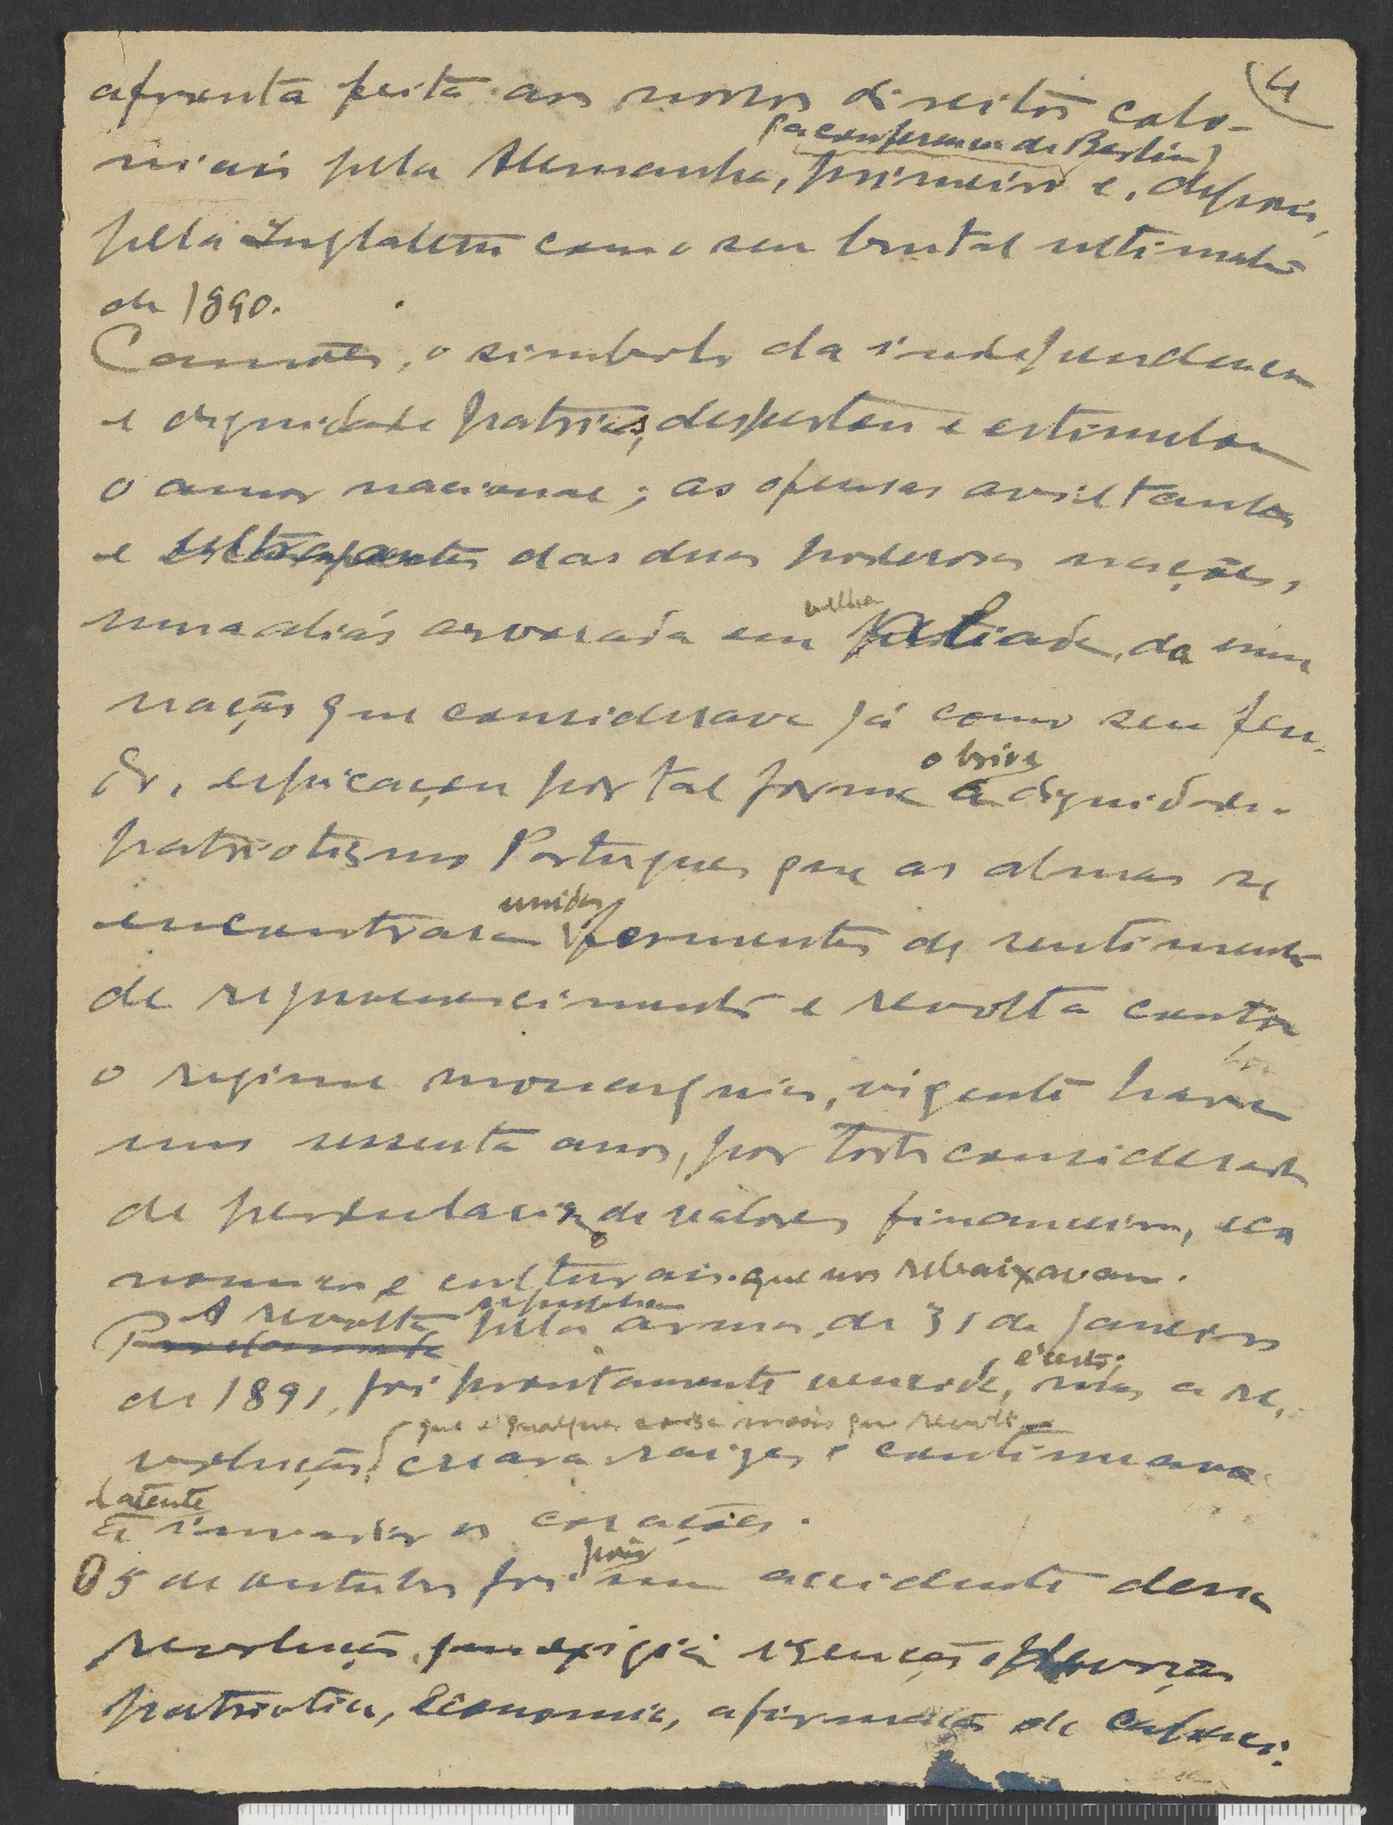 4
afronta feita aos nossos direitos colo-
(a conferencia de Berlim)
niais pela Alemanha, primeiro e, depois,
pela Inglaterra com o seu brutal ultimato
de 1890.
Camões, o simbolo da independencia
e dignidade patrias, despertou e estimulou
o amor nacional; as ofensas aviltantes
e ultrajantes das duas poderosas nações,
uma aliás arvorada em velha aliada, da
nação que considerava já como seu feu-
do, espicaçou por tal forma a dignidade
o brio
patriotismo Portugues que as almas se
unidas
encontraram fermentos de sentimento
de rejuvenescimento e revolta contra
o regime monarquico, vigente havia
uns sessenta anos, por todos considerado
de de valores financeiros, eco
nomicos e culturais que nos rebaixavam.
A revolta republicana pelas armas, de 31 de Janeiro
de 1891, foi prontamente vencida, é certo; mas a re-
que é qualquer coisa mais que revolta
volução, creara raizes e continuava
latente
a incendiar os corações.
O 5 de outubro foi pois um accidente dessa
revolução, que exigia isenção
patriotica, economia, afirmação de